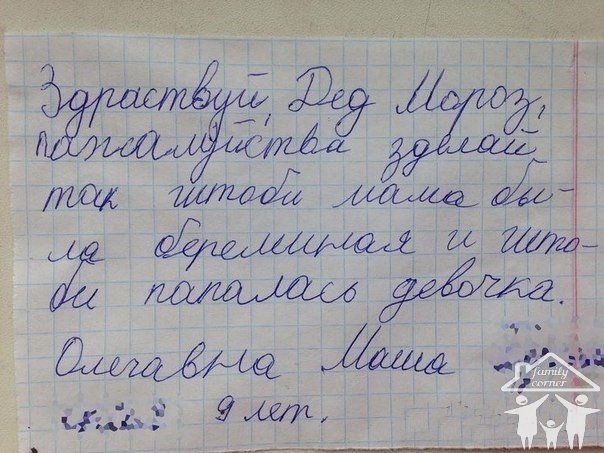 Здраствуй, Дед Мороз,
пажалуйства зделай
так штоби мама бы-
ла береминая и што-
би папалась девочка.
Олегавна Маша
9 лет.
family
corner